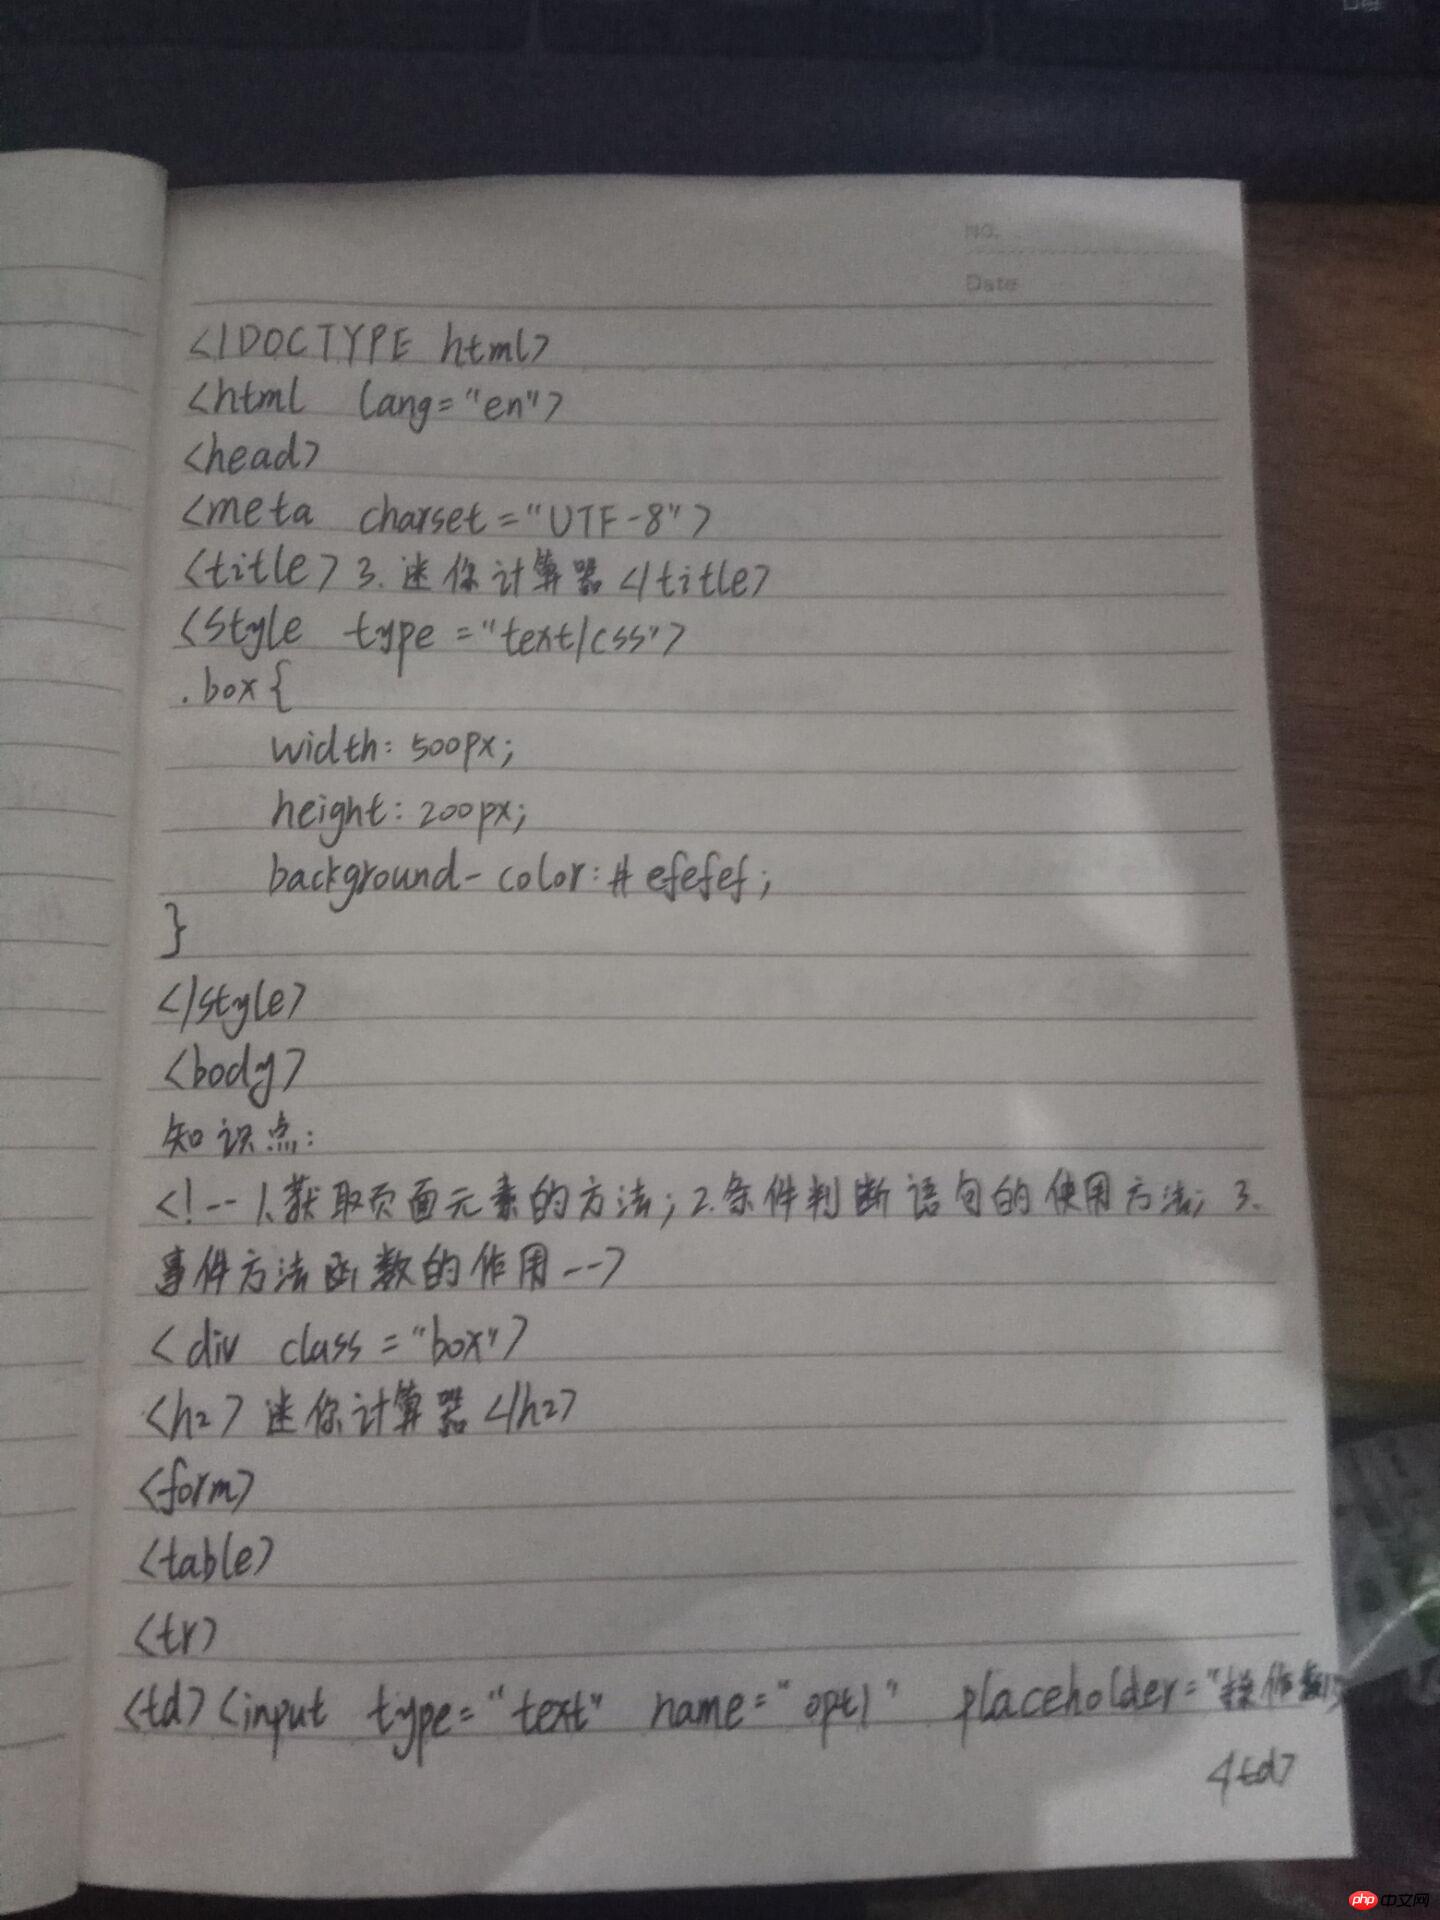 NO.
Date
<!DOCTYPE html>
<html lang="en">
<head>
<meta charset="UTF-8">
<title>3.迷你计算器</title>
<style type="text/css">
.box{
width: 500px;
height: 200px;
background-color: #efefef;
}
</style>
<body>
知识点:
<!--1.获取页面元素的方法;2.条件判断语句的使用方法;3.
事件方法函数的作用-->
<div class="box">
<h2>迷你计算器</h2>
<form>
<table>
<tr>
<td><input type="text" name="opt1" placeholder="操作数
</td>
php中文网